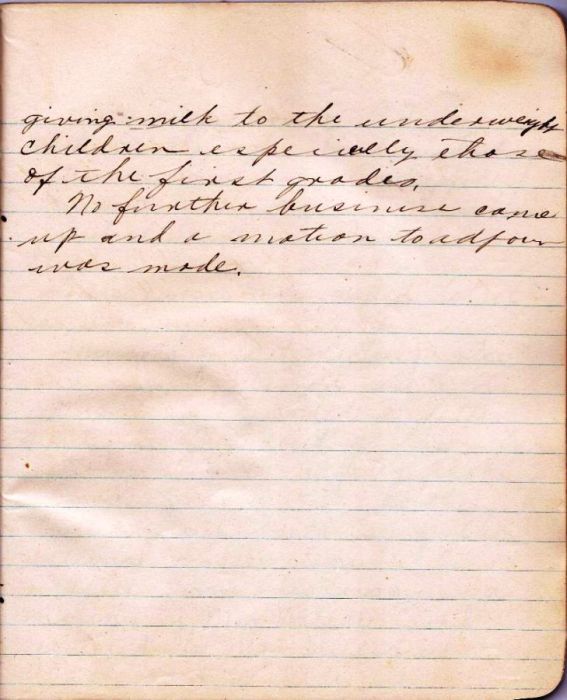 giving milk to the underweight
children especially those
of the first grades.
No further business came
up and a motion to adjourn
was made.